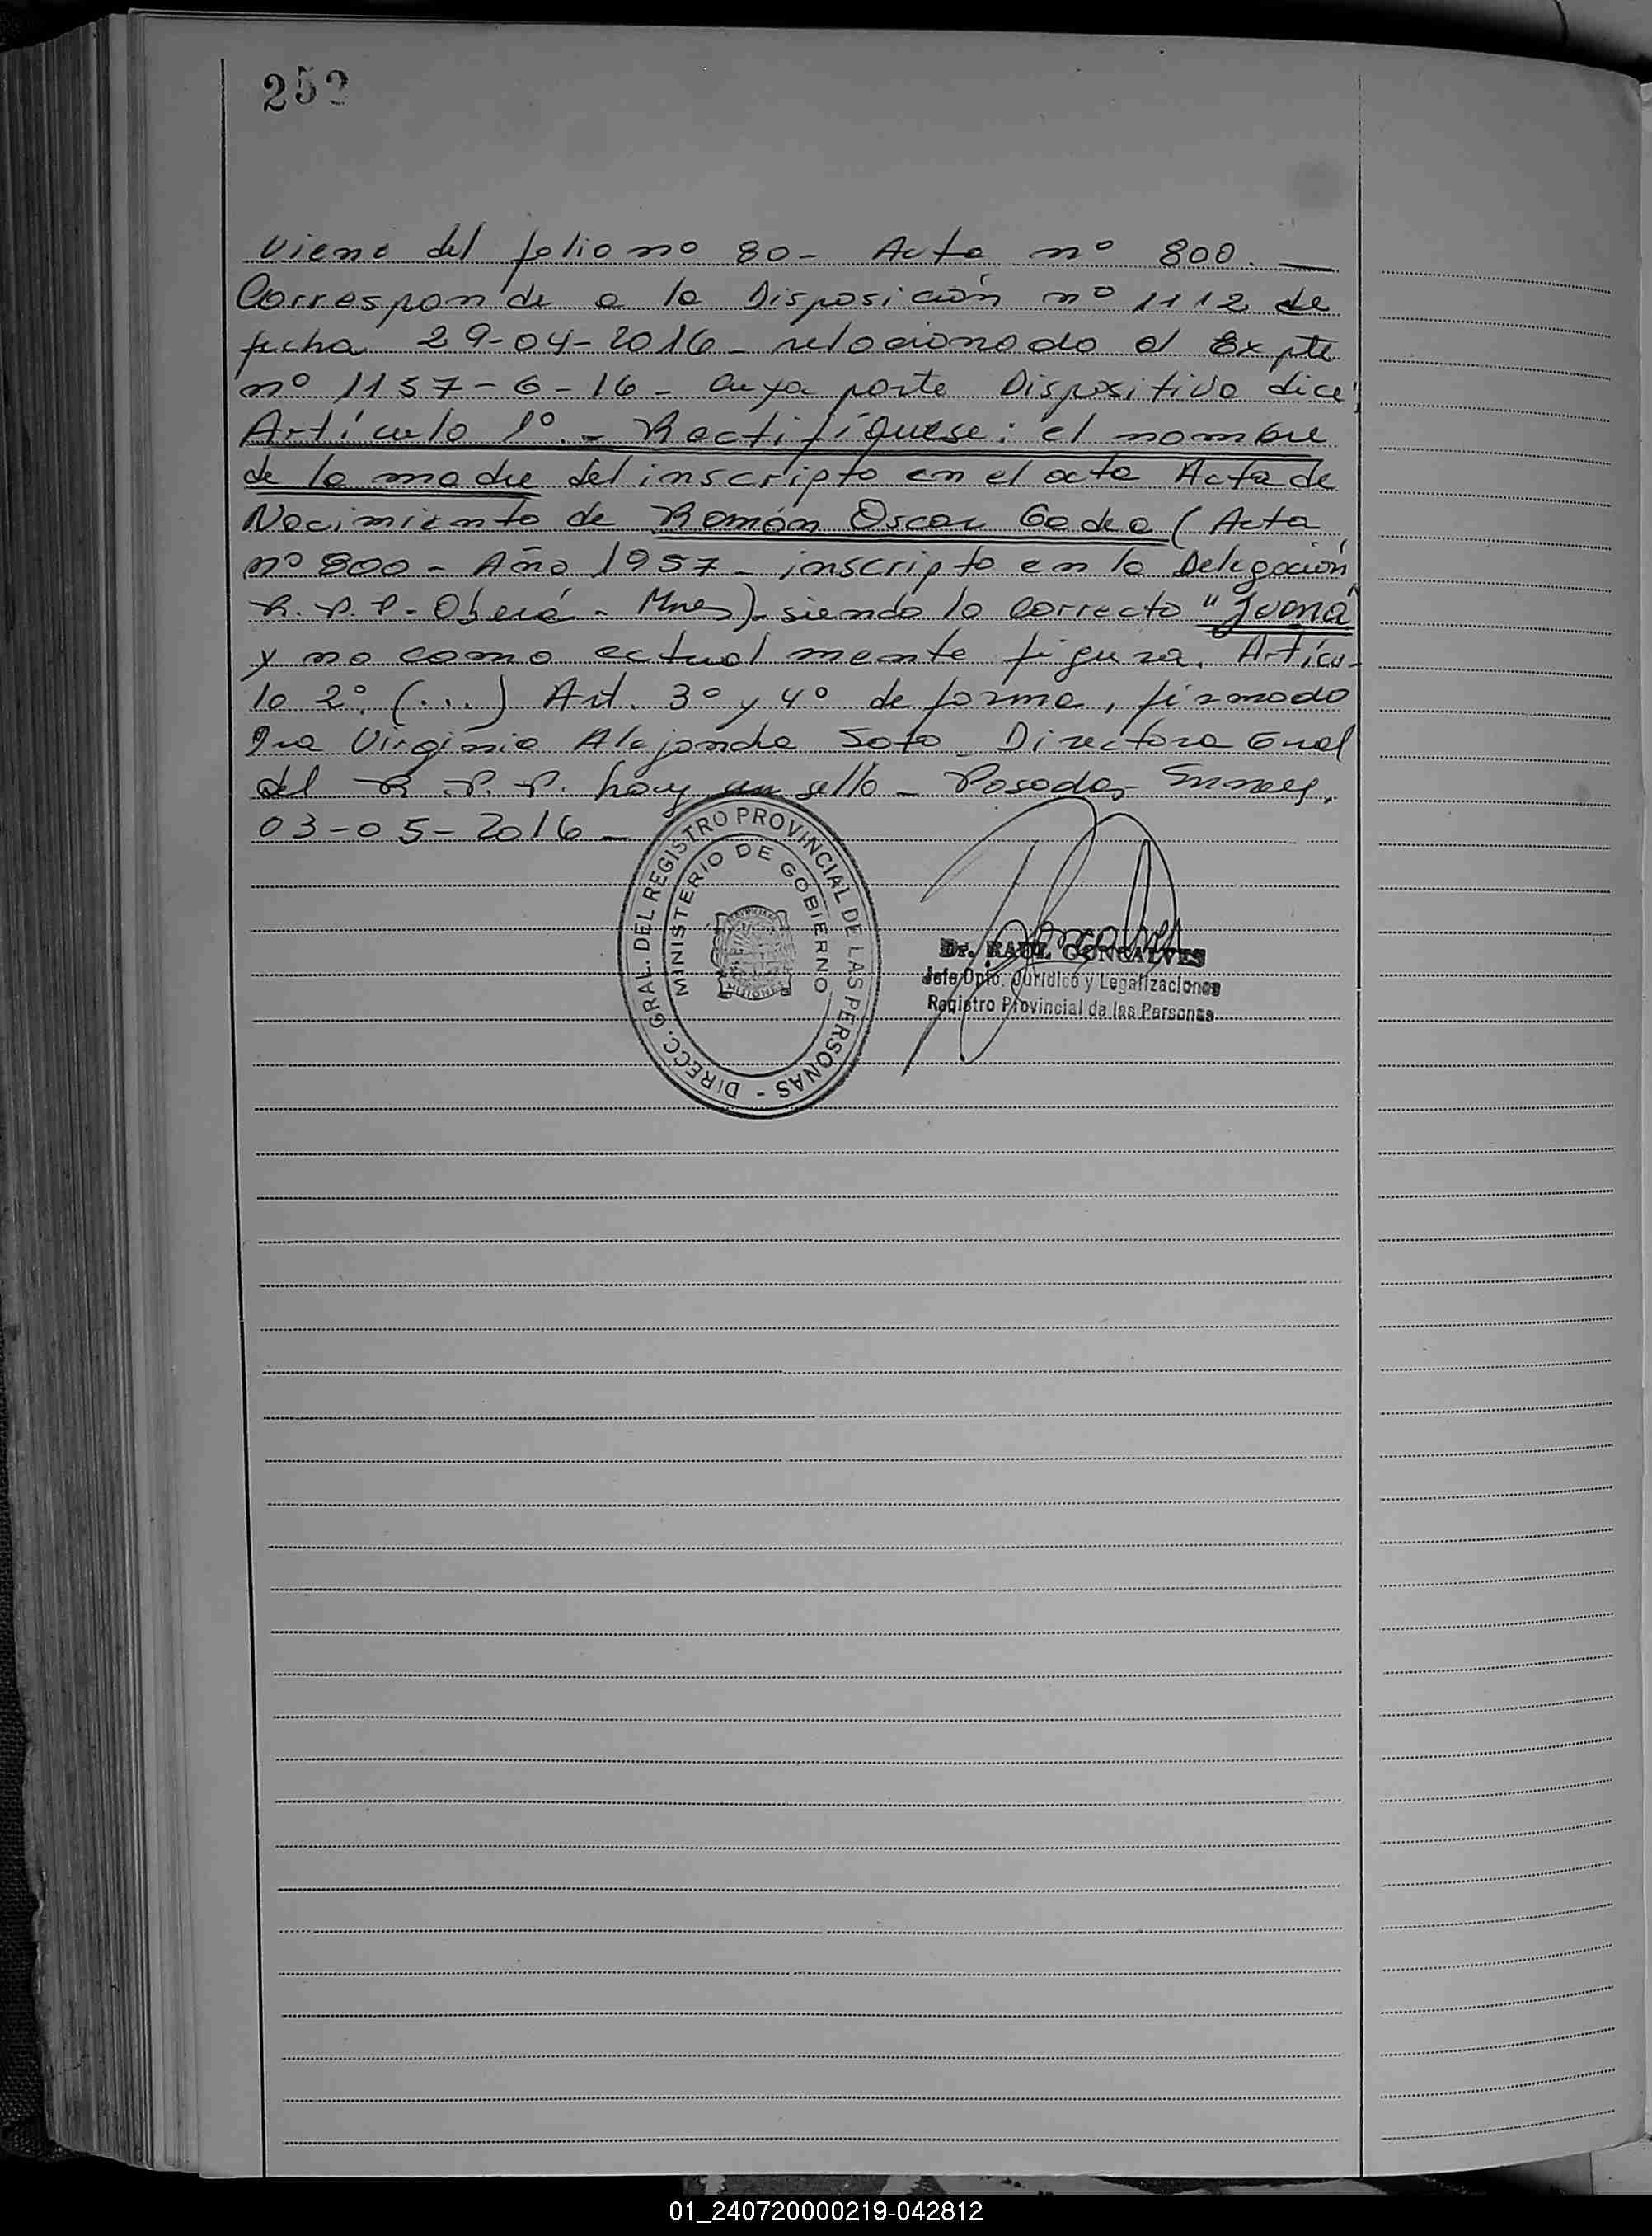 252
Viene del folio nº 80- Acta nº 800. —
Corresponde a la Disposición nº 1112 de
fecha 29-04-2016 - relacionado al Expte
nº 1157-G-16 - cuya parte Dispositiva dice:
Artículo 1º.- Rectifíquese: el nombre
de la madre del inscripto en el acta Acta de
Nacimiento de Ramón Oscar Godoa (Acta
nº 800 - Año 1957 - inscripto en la Delegación
R.P.P. - Oberá - Mnes) - siendo lo correcto "Juana"
y no como actualmente figura. Artícu-
lo 2º. (...) Art. 3º y 4º de forma, firmado
Dra Virginia Alejandra Soto - Directora Gral
del R.P.P. hay un sello - Posadas,
03-05-2016 -
DIRECC. GRAL. DEL REGISTRO PROVINCIAL DE LAS PERSONAS -
MINISTERIO DE GOBIERNO
MISIONES
Dr. RAUL GONCALVES
Jefe Dpto. Jurídico y Legalizaciones
Registro Provincial de las Personas
01_240720000219-042812